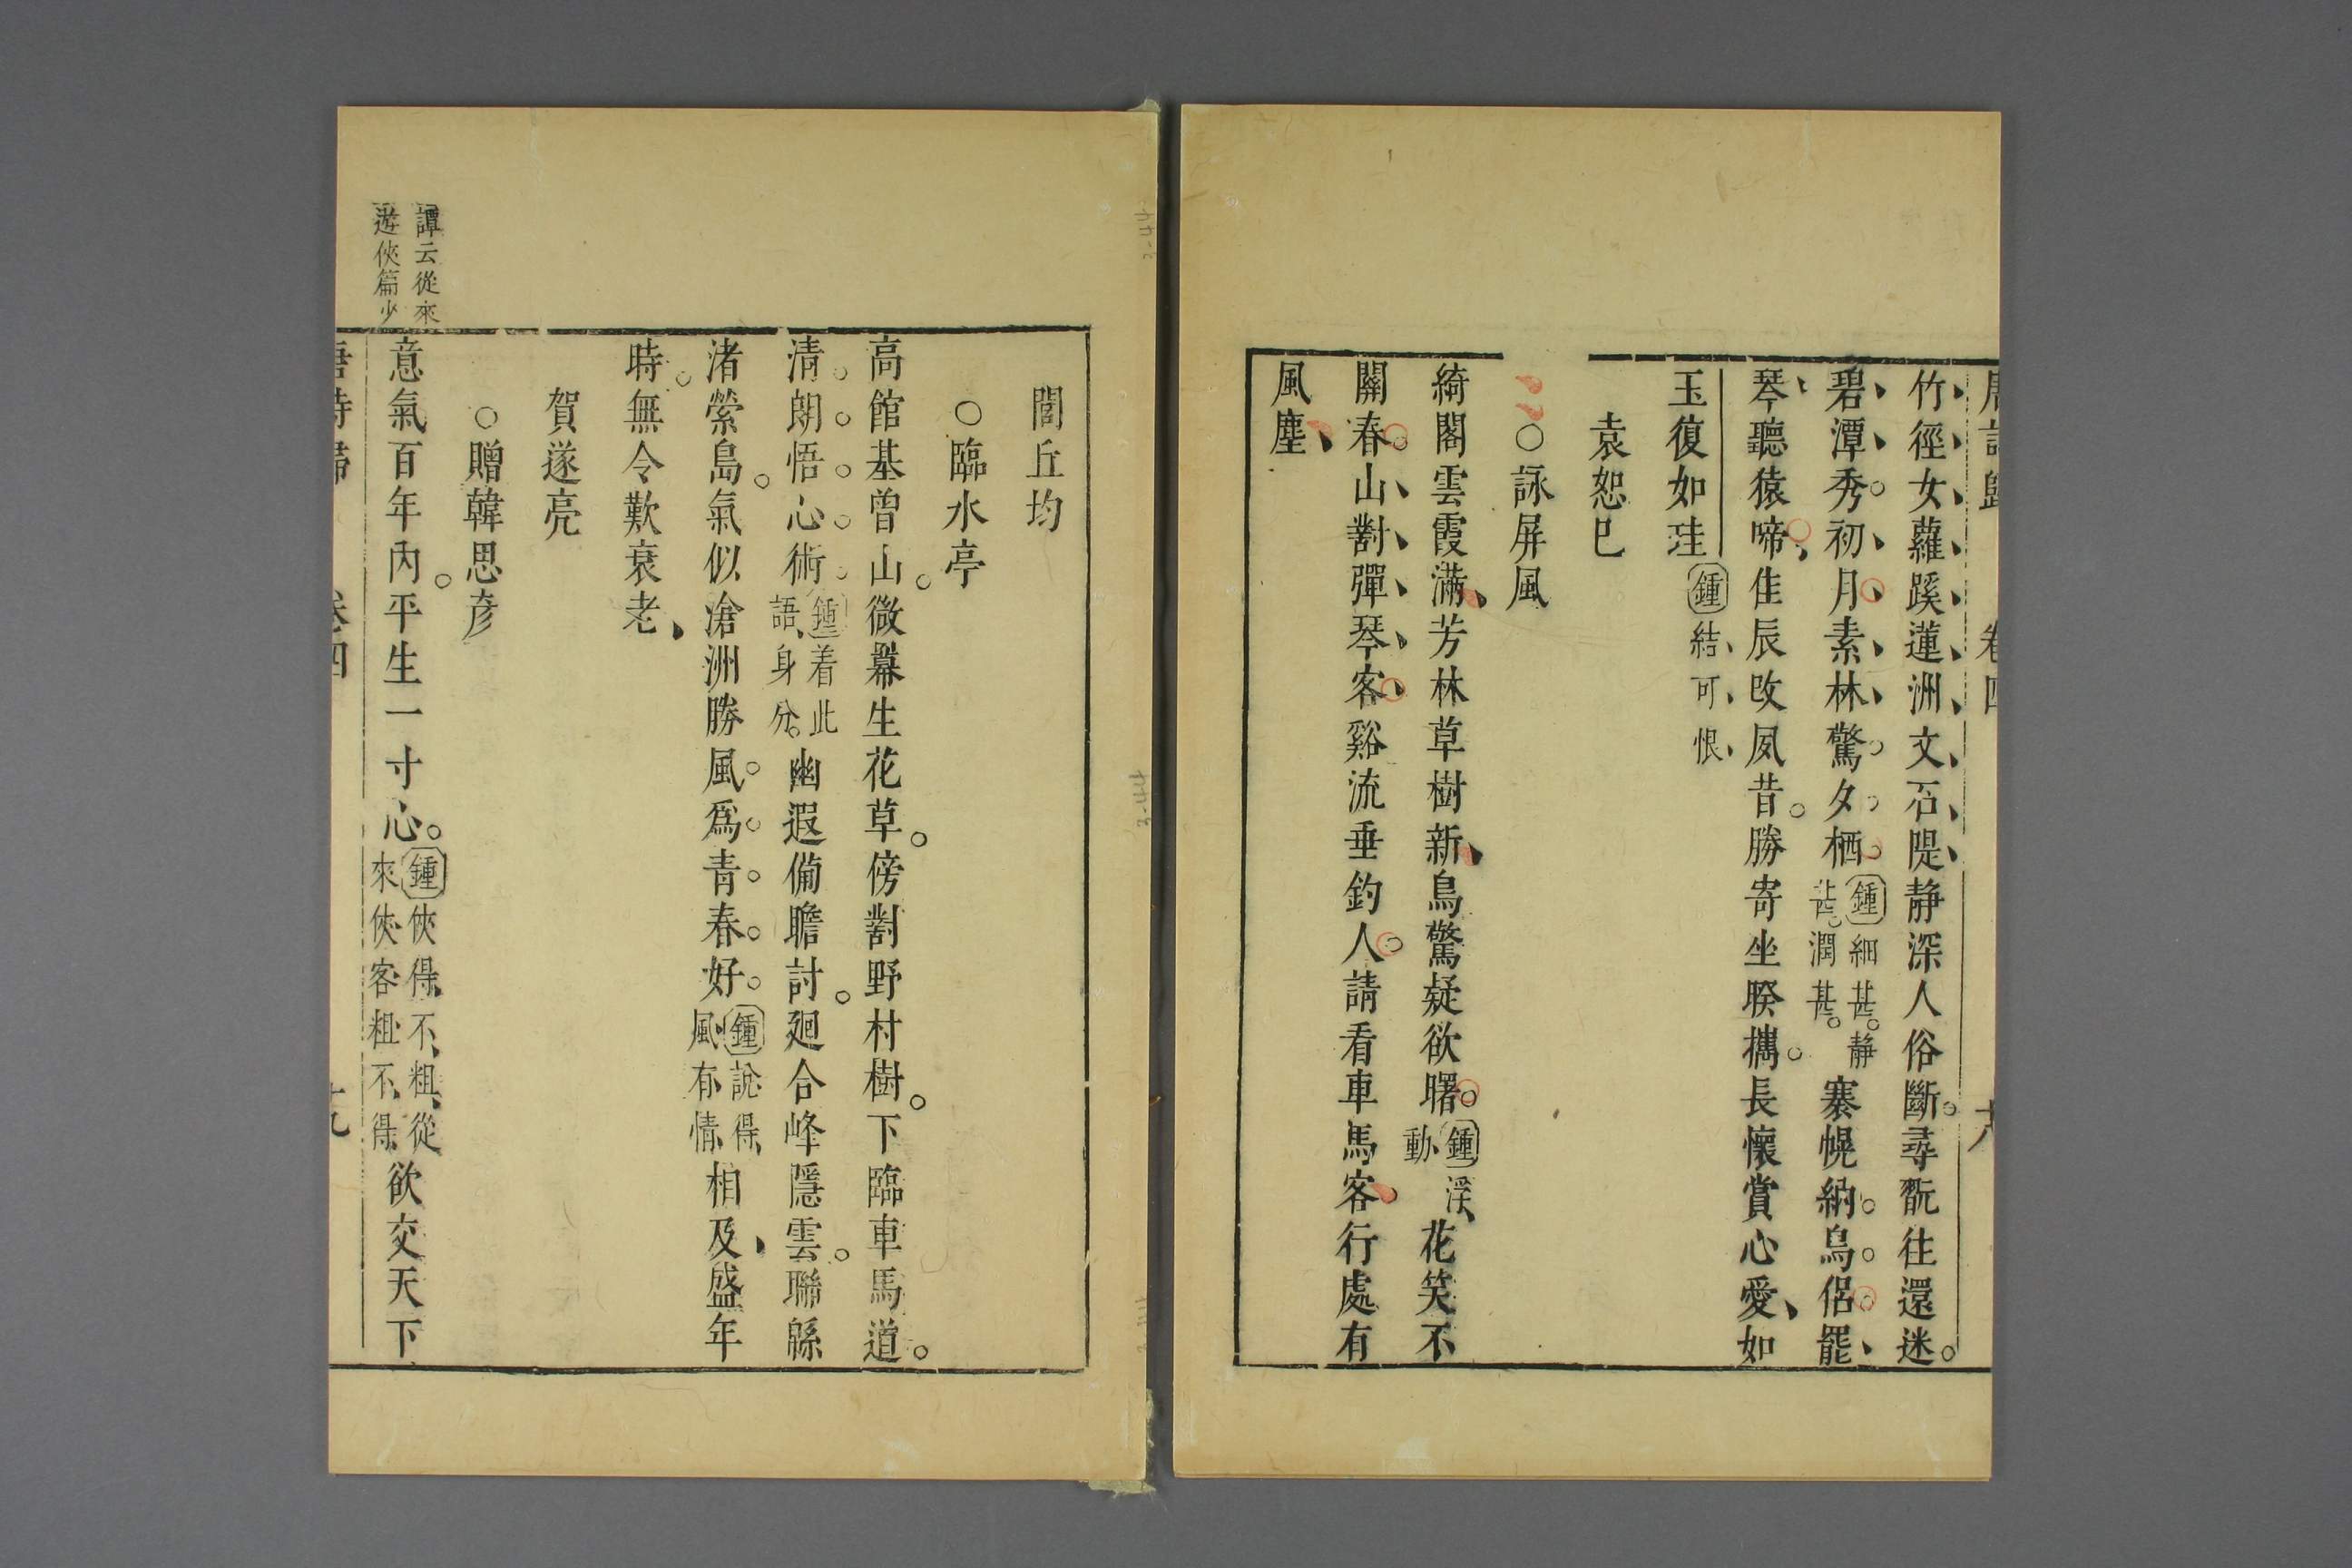 唐詩歸 卷四 十八
竹徑女蘿蹊蓮洲文石隄静深人俗斷尋翫往還迷
碧潭秀初月素林驚夕栖鍾細甚静甚潤甚褰幌納鳥侣罷
琴聽猿啼佳辰改夙昔勝寄坐暌攜長懷賞心愛如
玉復如珪鍾結可恨
袁恕己
○詠屏風
綺閣雲霞滿芳林草樹新鳥驚疑欲曙鍾深動花笑不
關春山對彈琴客谿流垂釣人請看車馬客行處有
風塵
閭丘均
○臨水亭
高館基曾山微幕生花草傍對野村樹下臨車馬道
清朗悟心術鍾着此語身分幽遐備瞻討廻合峰隱雲聯緜
渚縈島氣似滄洲勝風爲青春好鍾說得風有情相及盛年
時無令歎衰老
賀遂亮
○贈韓思彥
譚云從來
遊俠篇少
意氣百年內平生一寸心鍾俠得不粗從來俠客粗不得欲交天下
唐詩歸 卷四 十九